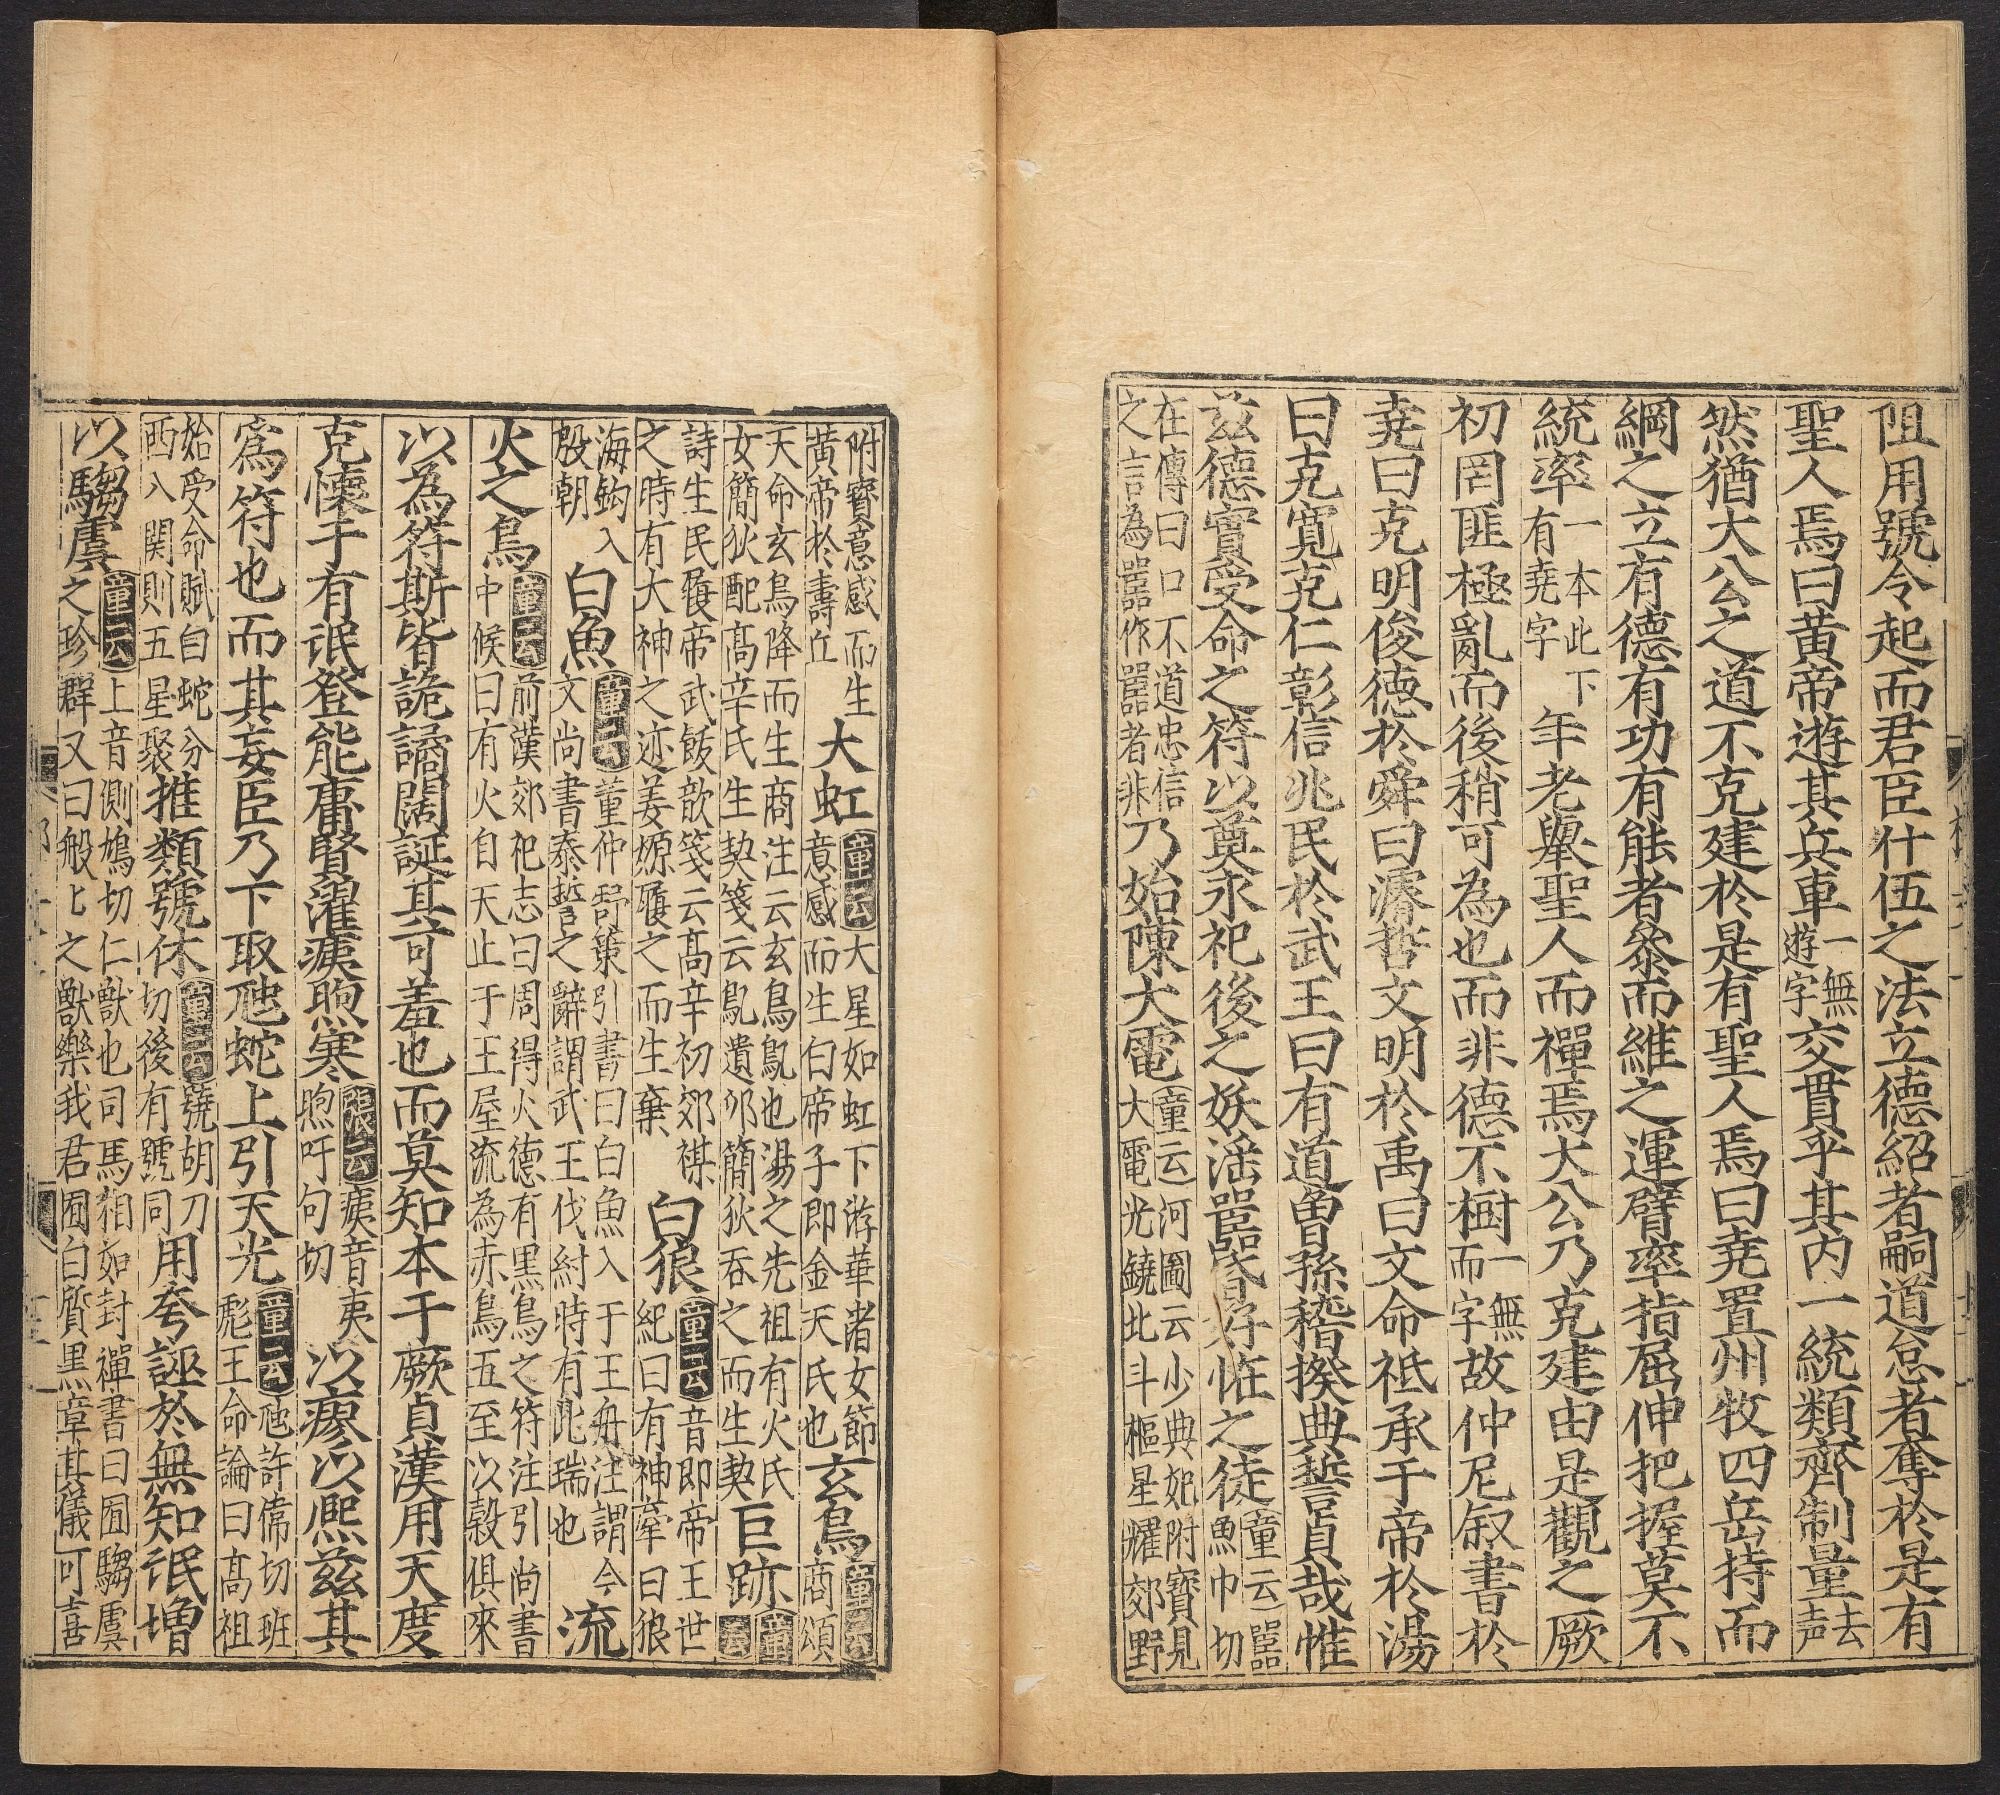 阻用號令起而君臣什伍之法立德紹者嗣道怠者奪於是有
聖人焉曰黃帝遊其兵車一無遊字交貫乎其内一統類齊制量去声
然猶大公之道不克建於是有聖人焉曰堯置州牧四岳持而
綱之立有德有功有能者叅而維之運臂率指屈伸把握莫不
統率一本此下有堯字年老舉聖人而禪焉大公乃克建由是觀之厥
初罔匪極亂而後稍可為也而非德不樹一無而字故仲尼叙書於
堯曰克明俊德於舜曰濬哲文明於禹曰文命祗承于帝於湯
曰克寬克仁彰信兆民於武王曰有道曾孫稽揆典誓貞哉惟
茲德實受命之符以奠永祀後之妖淫嚚昏好恠之徒童云嚚魚巾切
在傳曰口不道忠信之言為嚚作嚚者非乃始陳大電童云河圖云少典妃附寶見大電光繞北斗樞星燿郊野
附寶意感而生黃帝於壽丘大虹童云大星如虹下游華渚女節意感而生白帝子即金天氏也玄鳥童云商頌
天命玄鳥降而生商注云玄鳥鳦也湯之先祖有火氏女簡狄配高辛氏生契箋云鳦遺卵簡狄吞之而生契巨跡童云
詩生民履帝武敏歆箋云高辛初郊禖之時有大神之迹姜嫄履之而生棄白狼童云音即帝王世紀曰有神牽白狼
海鈎入殷朝白魚童云董仲舒策引書曰白魚入于王舟注謂今文尚書泰誓之辭謂武王伐紂時有此瑞也流
火之烏童云前漢郊祀志曰周得火德有黑烏之符注引尚書中候曰有火自天止于王屋流為赤烏五至以穀俱來
以為符斯皆詭譎闊誕其可羞也而莫知本于厥貞漢用天度
克懷于有氓登能庸賢濯痍煦寒張云痍音夷煦吁句切以瘳以熙茲其
為符也而其妄臣乃下取虺蛇上引天光童云虺許偉切班彪王命論曰高祖
始受命賦白蛇分西入關則五星聚推類號休童云號胡刀切後有號同用夸誣於無知氓增
以騶虞童云上音側鳩切仁獸也司馬相如封禪書曰囿騶虞之珍群又曰般匕之獸樂我君囿白質黑章其儀可喜